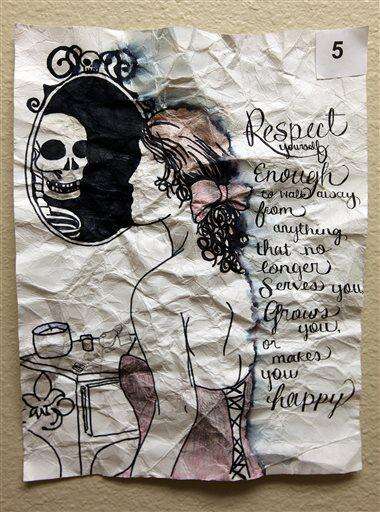 5
Respect
yourself
Enough
to walk away
from
anything
that no
longer
Serves you
Grows
you,
or
makes
you
happy